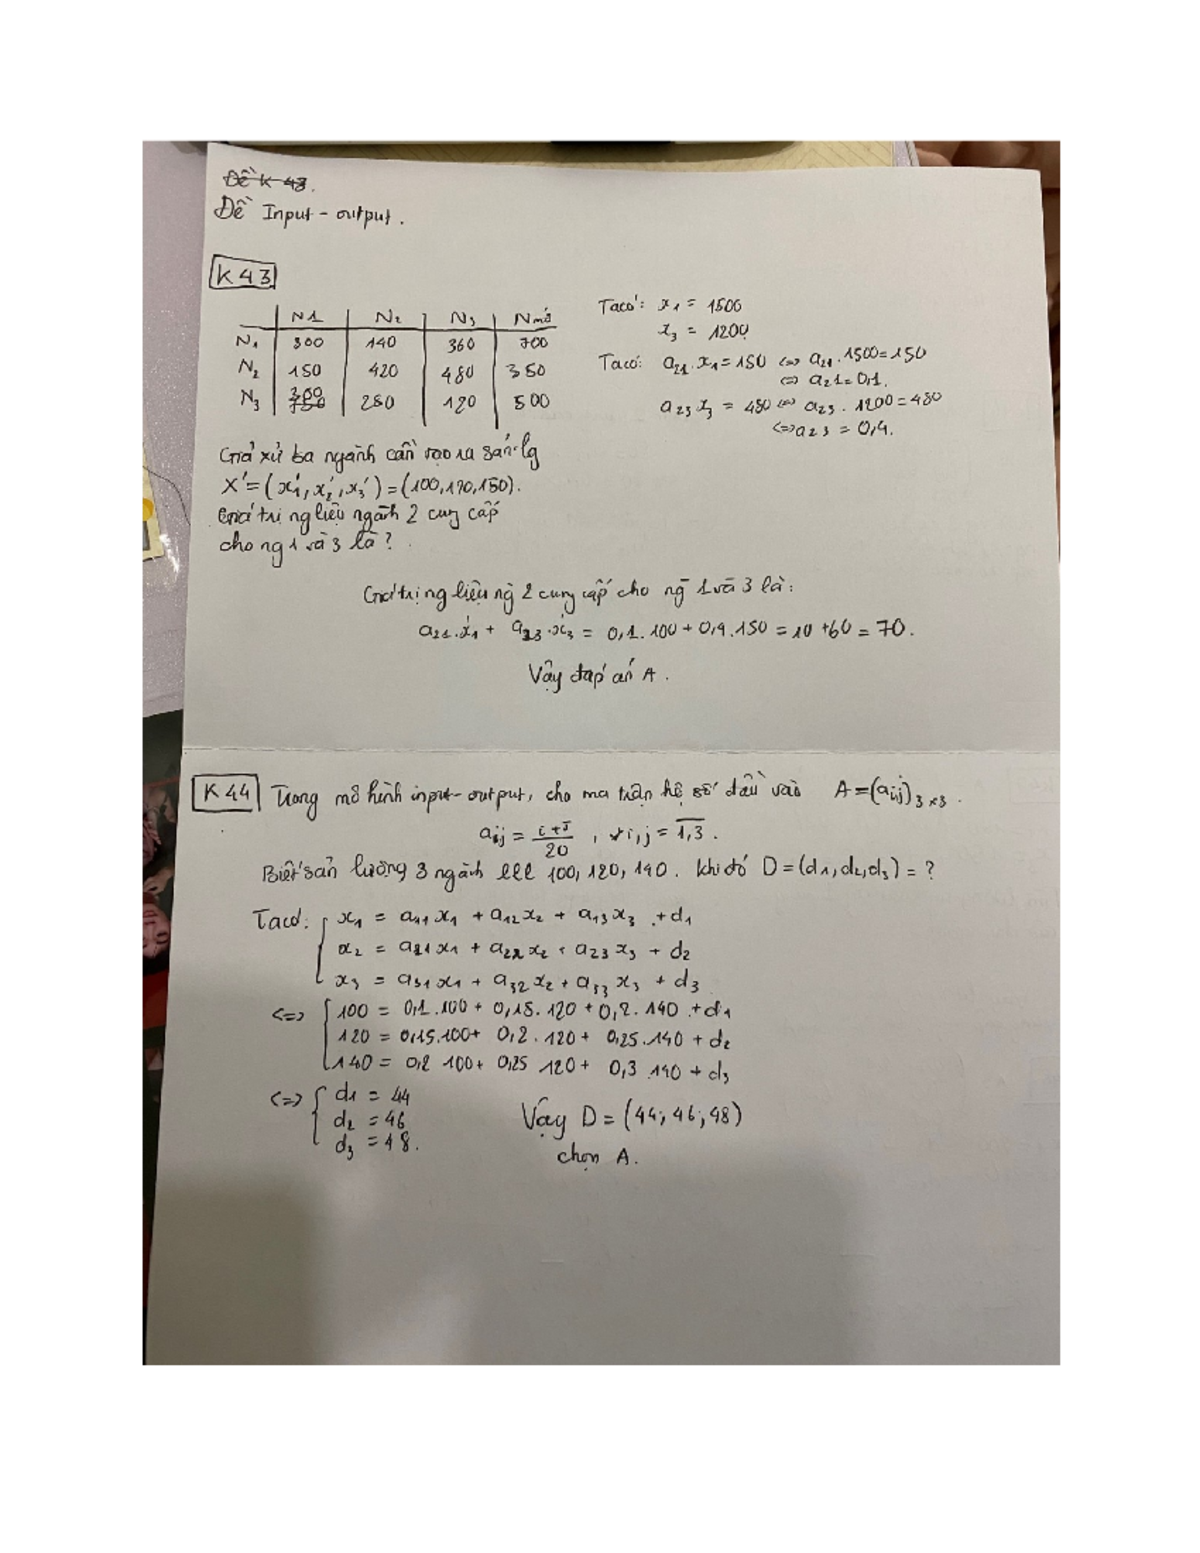 Đề K 43.
Đề Input - output.
K 43
N1 N2 N3 Nmở
N1 300 140 360 700
N2 150 420 480 350
N3 300 280 120 500
Ta có: x1 = 1500
x3 = 1200
Ta có: a21.x1 = 150 <=> a21.1500 = 150
<=> a21 = 0,1.
a23 x3 = 480 <=> a23.1200 = 480
<=> a23 = 0,4.
Giả xử ba ngành cần tạo ra sản lg
X' = (x1', x2', x3') = (100, 120, 150).
Giá trị ng liệu ngành 2 cung cấp
cho ng 1 và 3 là?
Giá trị ng liệu ng 2 cung cấp cho ng 1 và 3 là:
a21.x1' + a23.x3' = 0,1.100 + 0,4.150 = 10 + 60 = 70.
Vậy đáp án A.
K 44 Trong mô hình input-output, cho ma trận hệ số đầu vào A = (aij)3x3.
aij = (i+j)/20, ∀i,j = 1,3.
Biết sản lượng 3 ngành lll 100, 120, 140. Khi đó D = (d1, d2, d3) = ?
Ta có: x1 = a11x1 + a12x2 + a13x3 + d1
x2 = a21x1 + a22x2 + a23x3 + d2
x3 = a31x1 + a32x2 + a33x3 + d3
<=> 100 = 0,1.100 + 0,15.120 + 0,2.140 + d1
120 = 0,15.100 + 0,2.120 + 0,25.140 + d2
140 = 0,2 100 + 0,25 120 + 0,3.140 + d3
<=> d1 = 44
d2 = 46
d3 = 48.
Vậy D = (44; 46; 48)
chọn A.